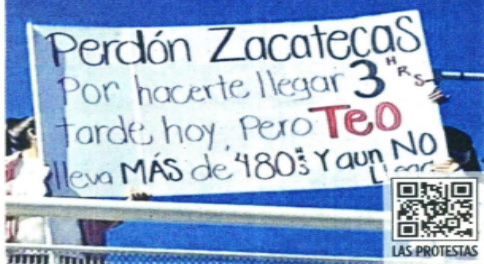 Perdón Zacatecas
Por hacerte llegar 3 HRS
tarde, hoy, Pero TEO
lleva MÁS de 480 HS Y aun NO
LAS PROTESTAS